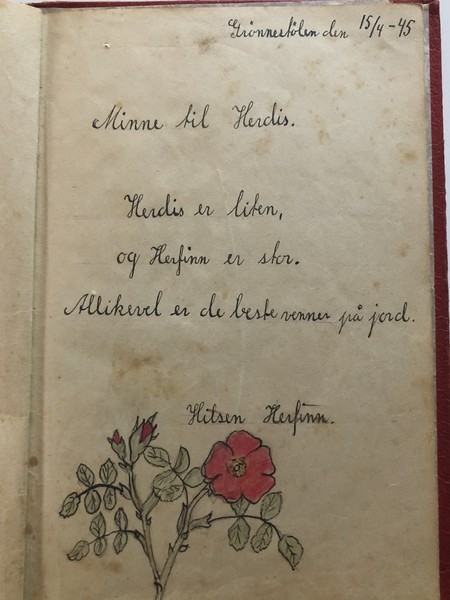 Grönnestölen den 15/4-45
Minne til Herdis.
Herdis er liten,
og Herfinn er stor.
Allikevel er de beste venner på jord.
Hilsen Herfinn.